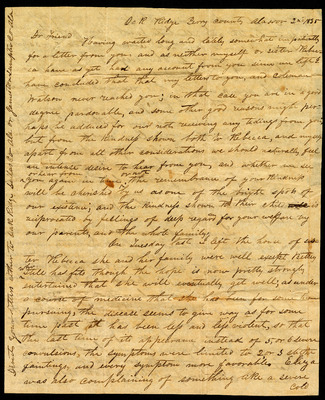 Oak Ridge Perry County Ala Nov 2nd 1835
Dr Friend
Having waited long and lately somewhat impatiently
for a letter from you and as neither myself or sister Rebec
ca have as yet had any account from you since we left I
have concluded that that my letters to you, and Coleman
Watson never reached you; in that case you are in a good
degree pardonable, and some other good reasons might per
haps be adduced for our not receiving any tidings from you
but from the kindness shown both to Rebecca, and myself
apart from all other considerations we should naturally feel
an intense desire to hear from you, and whether we see
or hear from or not
you again the remembrance of your kindness
will be cherished by us as one of the bright spots of
our existence; and the kindness shown to their child is
reciprocated by feelings of deep regard for your welfare by
our parents, and the whole family.
On Tuesday last I left the home of sis
ter Rebecca she and her family were well except
still has fits though the hope is now pretty strongly
entertained that she will eventually get well; as under
a course of medicine that she has been for some time
pursuing, the disease seems to give way as for some
time past it has been less and less violent, so that
the last time of its appearance instead of 5, or 6 severe
convulsions, the symptoms were limited to 2 or 3 slight
faintings, and every symptom more favorable. Eliza
was also complaining of something like a severe
Cold